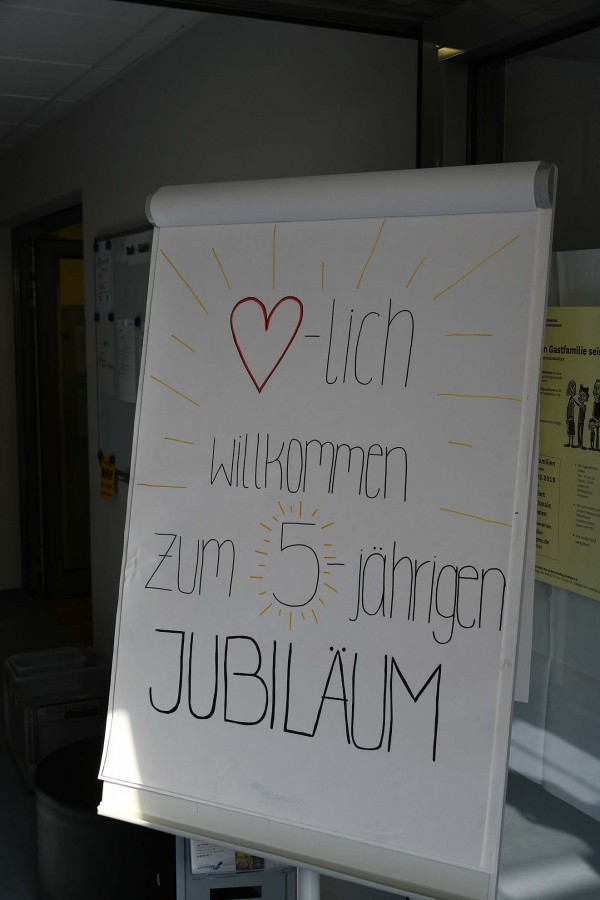 ♡-lich
willkommen
zum 5-jährigen
JUBILÄUM
n Gastfamilie sein